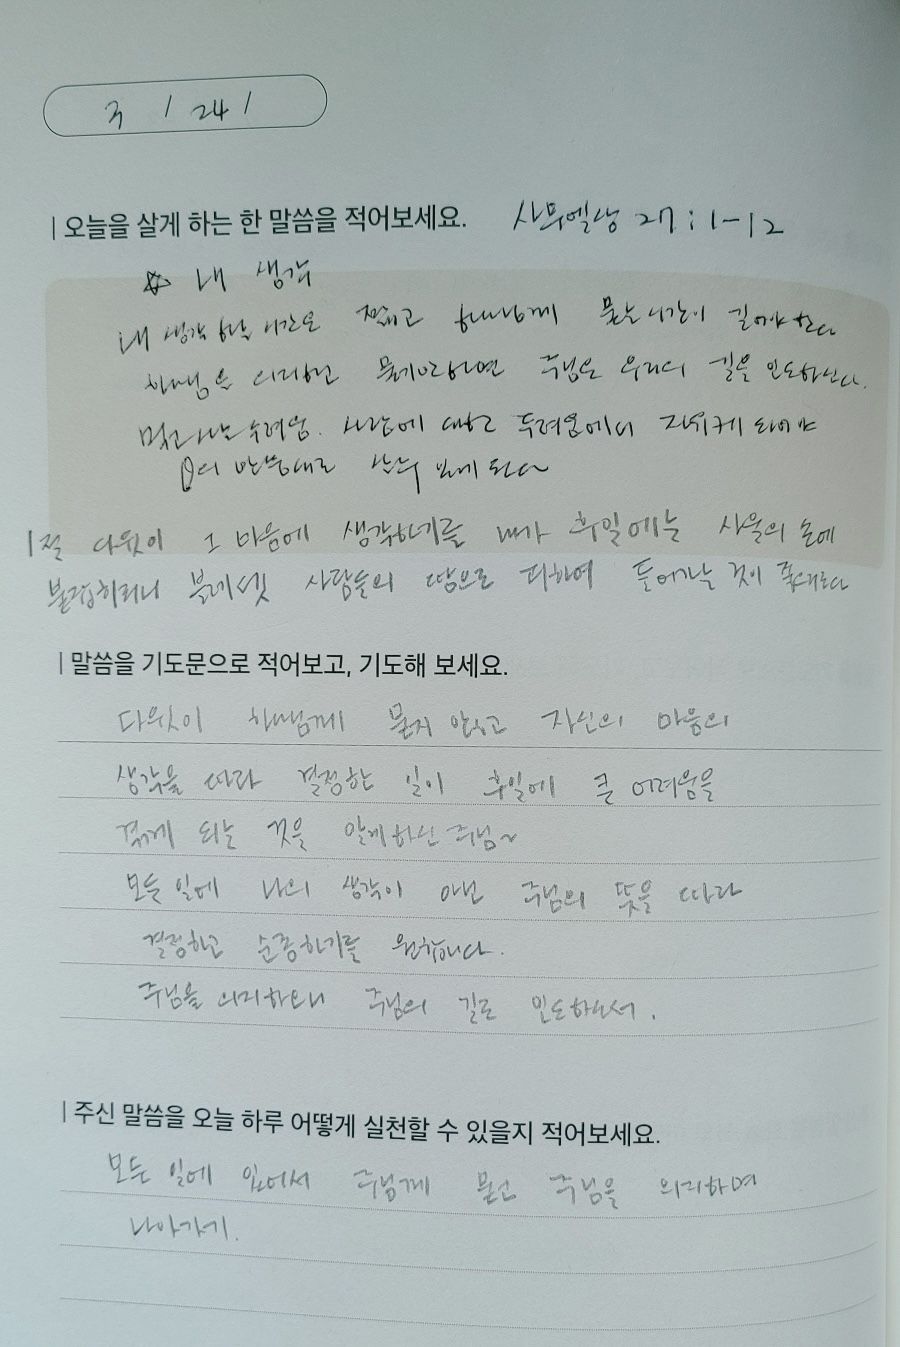 3 / 24 /
| 오늘을 살게 하는 한 말씀을 적어보세요. 사무엘상 27:1-12
☆ 내 생각
내 생각하는 시간은 짧고 하나님께 묻는 시간이 길어야 한다
하나님을 의지하고 물어 주님은 우리의 길을 인도하신다.
먹고 사는 두려움. 사람에 대한 두려움에서 자유케 되어야
말씀대로 살수 있게 된다
1절 다윗이 그 마음에 생각하기를 내가 후일에는 사울의 손에
붙잡히리니 블레셋 사람들의 땅으로 피하여 들어가는 것이 좋으리로다
| 말씀을 기도문으로 적어보고, 기도해 보세요.
다윗이 하나님께 묻지 않고 자신의 마음의
생각을 따라 결정한 일이 후일에 큰 어려움을
겪게 되는 것을 알게하신 주님~
모든 일에 나의 생각이 아닌 주님의 뜻을 따라
결정하고 순종하기를 원합니다.
주님을 의지하오니 주님의 길로 인도하소서.
| 주신 말씀을 오늘 하루 어떻게 실천할 수 있을지 적어보세요.
모든 일에 있어서 주님께 묻고 주님을 의지하며
나아가기.